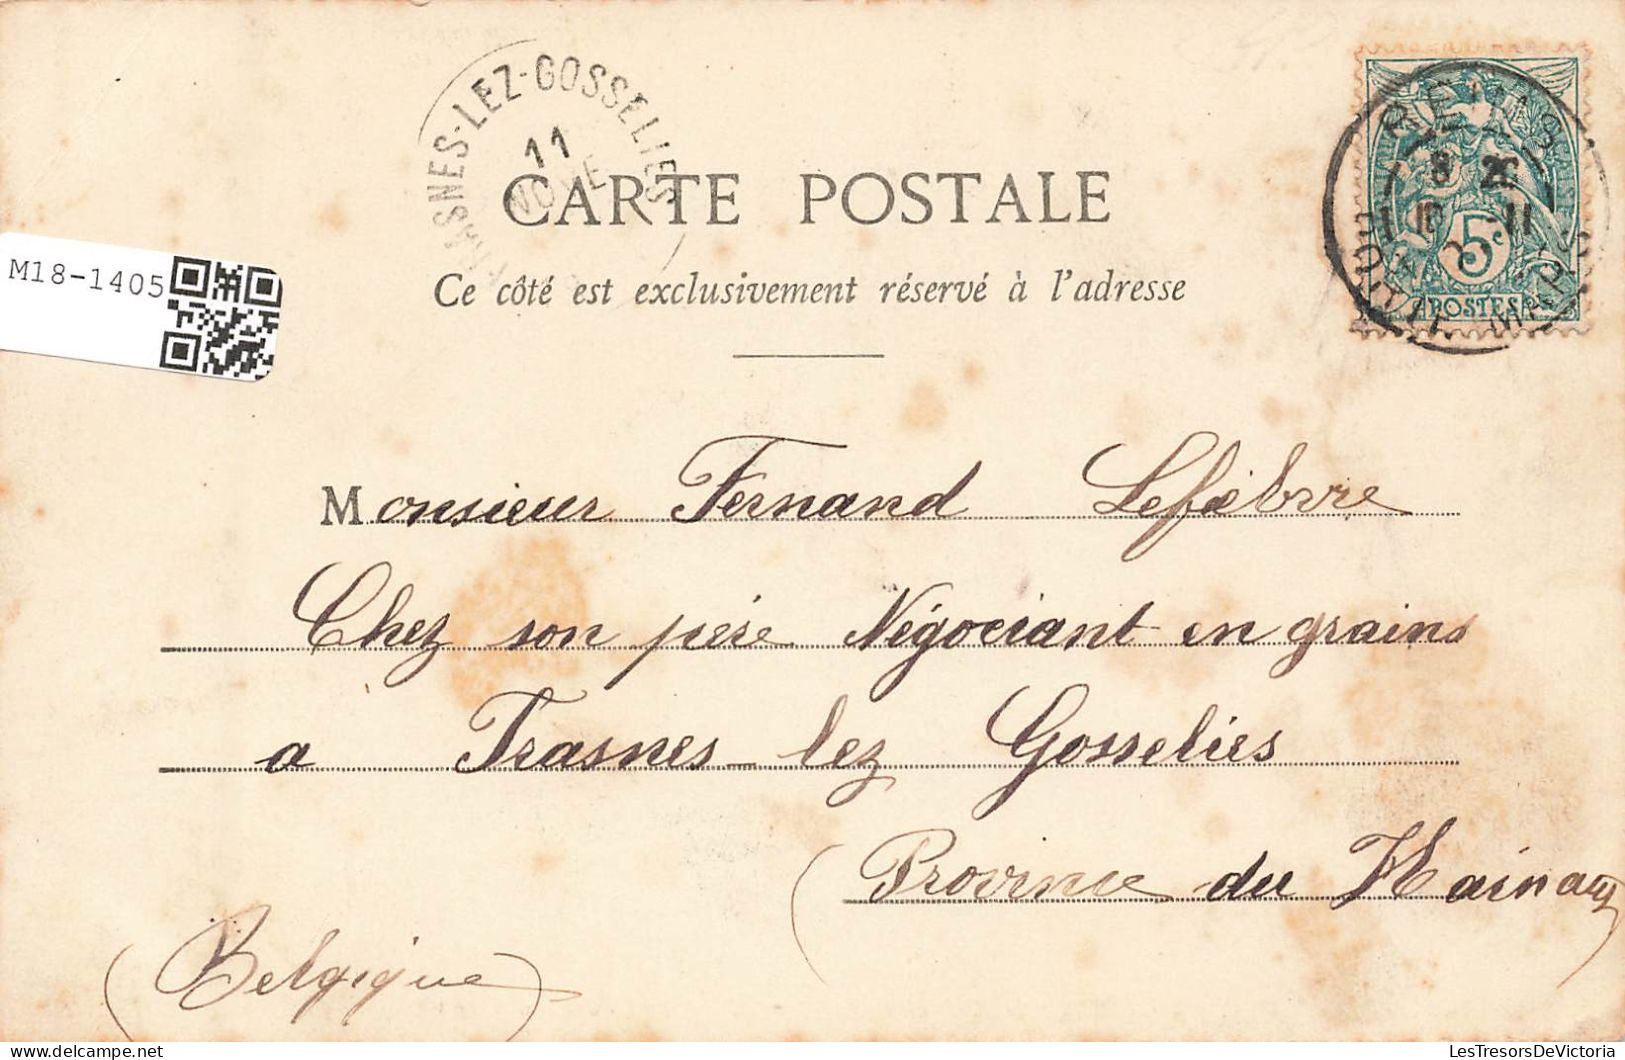 FRASNES-LEZ-GOSSELIES
11
NOVE
REIMS
8 20
10 -11
5c
POSTES
CARTE POSTALE
Ce côté est exclusivement réservé à l'adresse
M18-1405
Monsieur Fernand Lefèbvre
Chez son père Négociant en grains
a Frasnes-lez Gosselies
(Province du Hainaut)
(Belgique)
LesTresorsDeVictoria